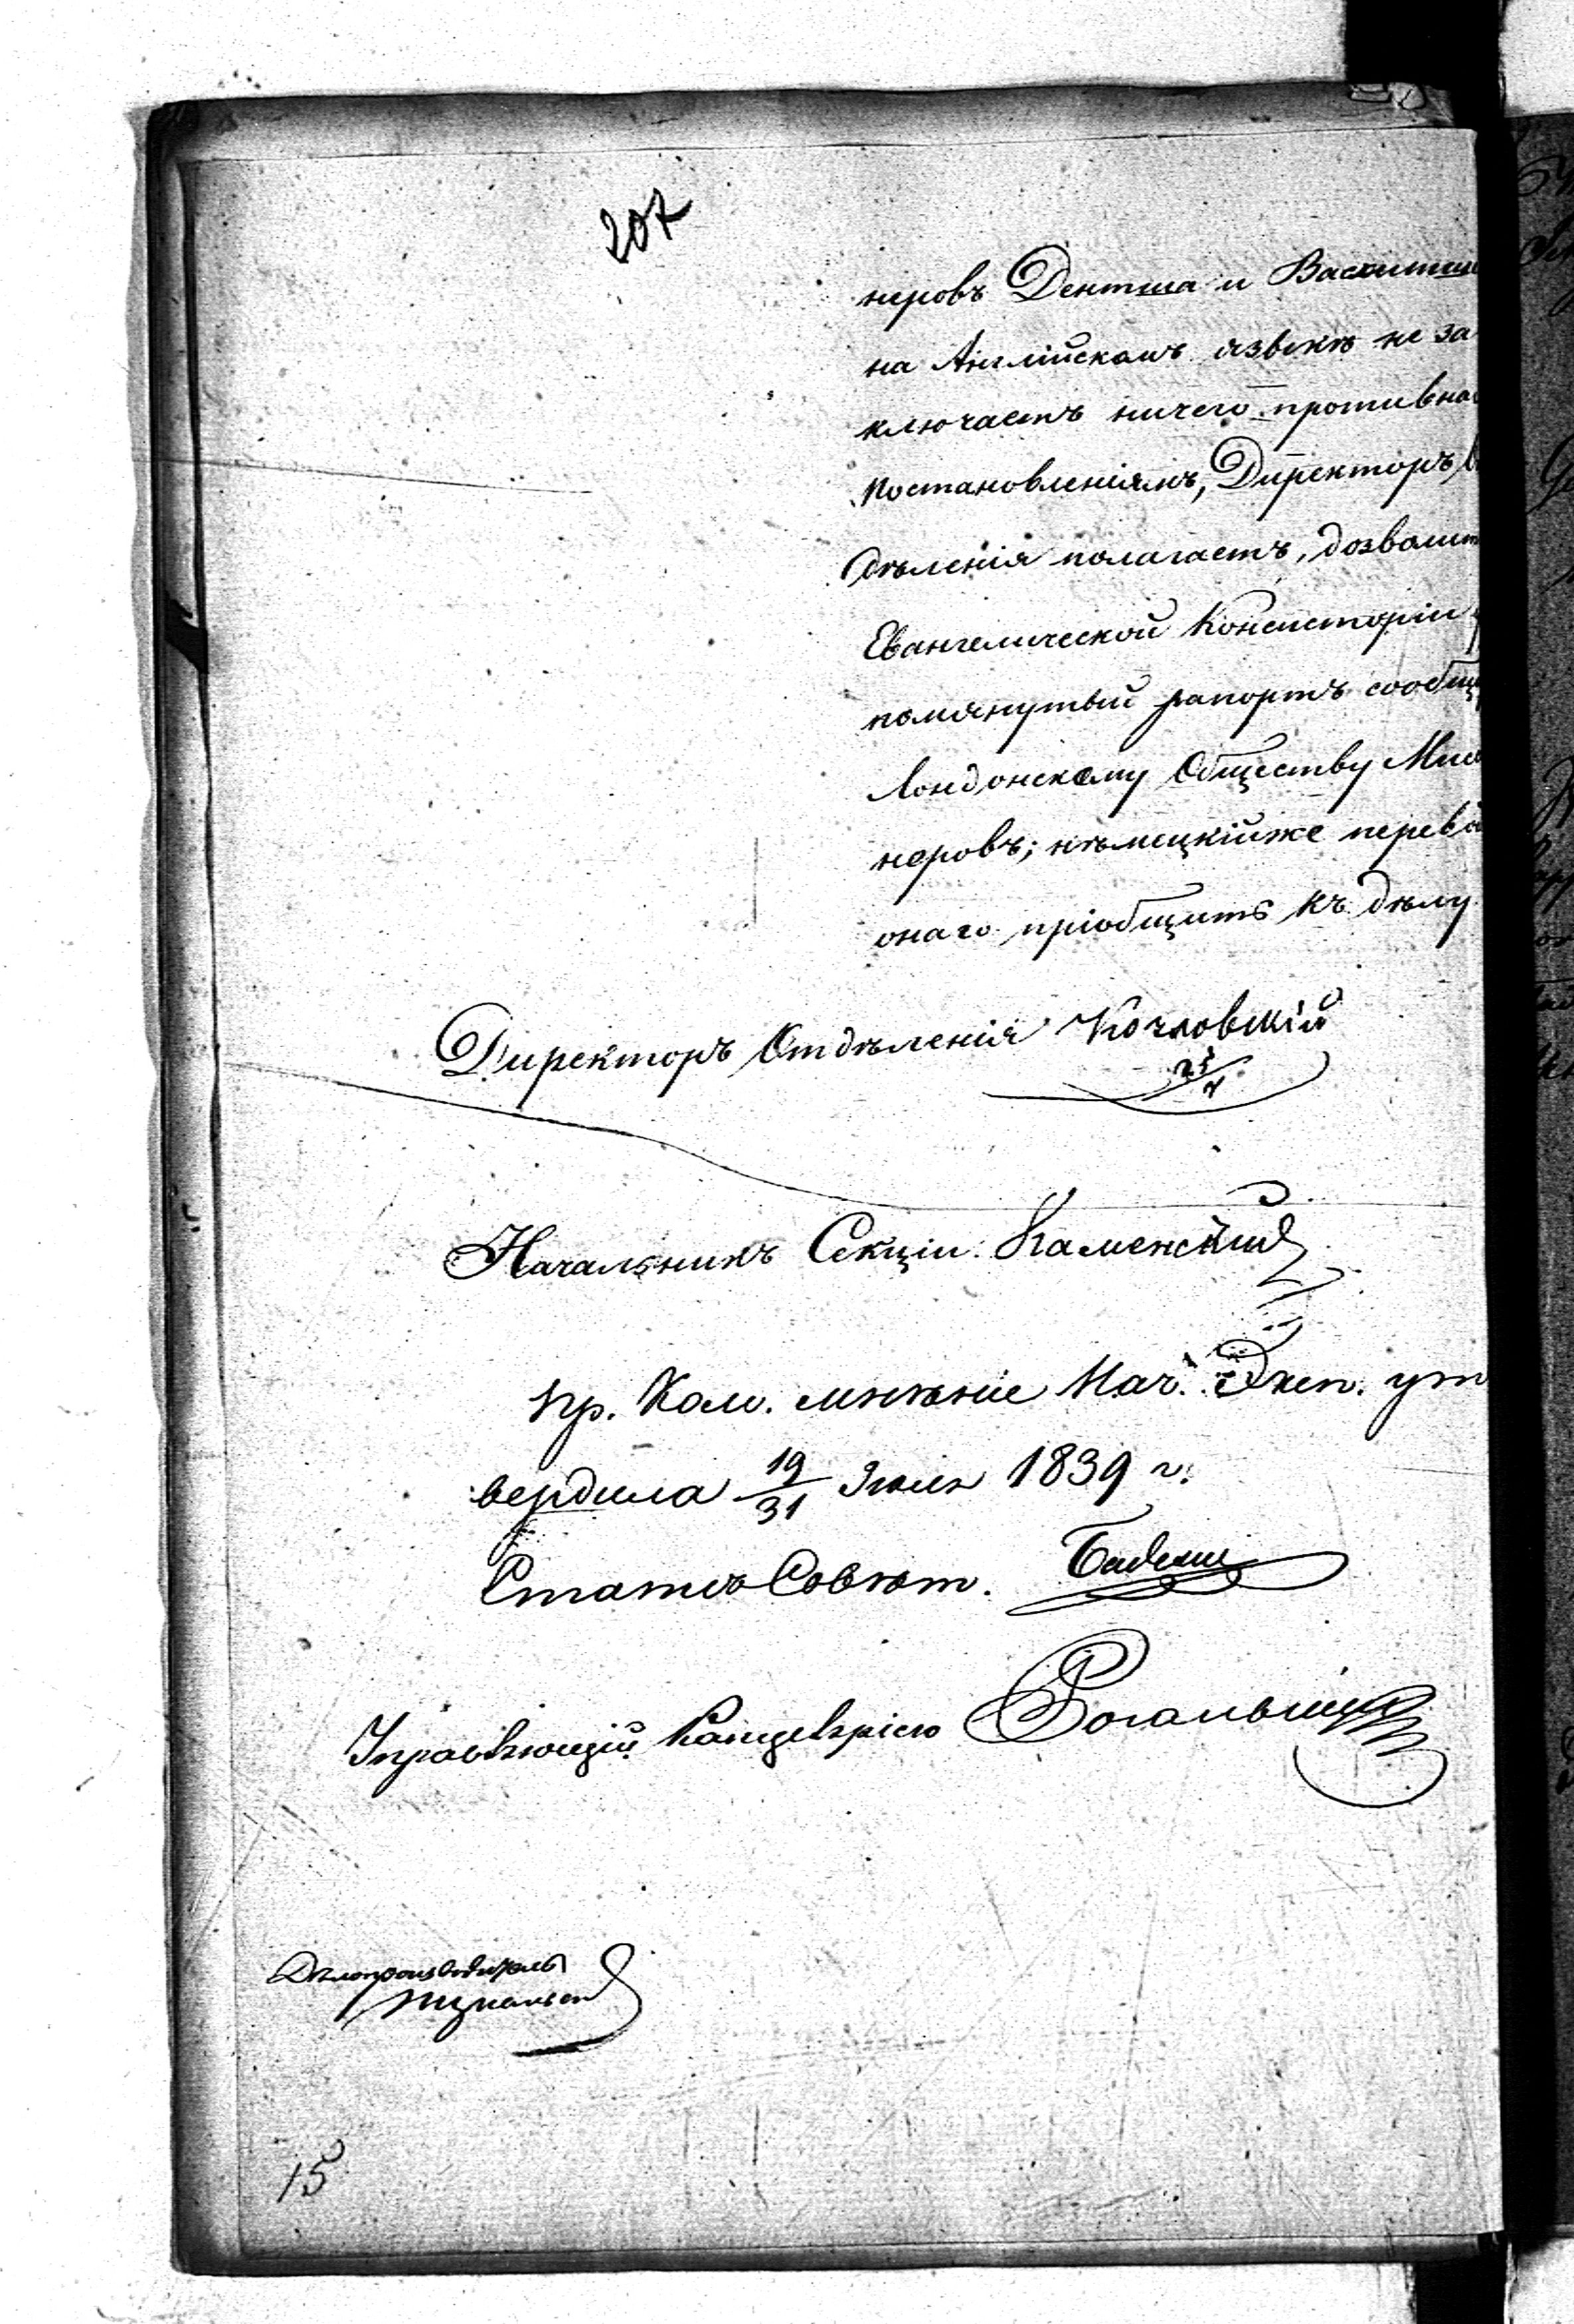 207
неровъ Дентша и
на Англійскомъ языкѣ не за
ключаетъ ничего противна
постановленіямъ, Директоръ
дѣленія полагаетъ, дозволит
Евангелической Консисторіи
помянутый рапортъ сообщ
Лондонскому Обществу Мисс
неровъ; нѣмецкійже перево
онаго пріобщить къ дѣлу
Директоръ Отдѣленія
Начальникъ Секціи Каменскій
Пр. Ком. мнѣніе Нач. Эксп. ут
вердила 19/31 Іюля 1839 г.
Статсъ Совѣт.
Управляющій Канцеляріею
Дѣлопроизводитель
15